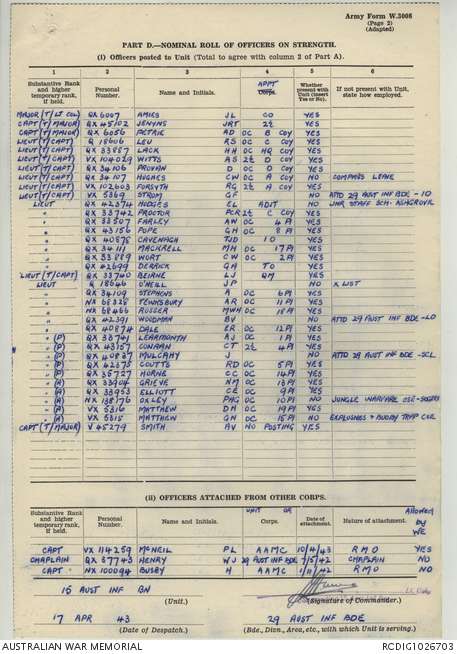 Army Form W.3008
(Page 2)
(Adapted)
PART D.—NOMINAL ROLL OF OFFICERS ON STRENGTH.
(i) Officers posted to Unit (Total to agree with column 2 of Part A).
1 2 3 4 5 6
Substantive Rank and higher temporary rank, if held. Personal Number. Name and Initials. APPT Corps. Whether present with Unit (insert Yes or No). If not present with Unit, state how employed.
MAJOR (T/ LT COL) QX 6007 AMIES JL CO YES
CAPT (T/ MAJOR) QX 45102 JENYNS JRT 2 i/c YES
CAPT (T/ MAJOR) QX 6056 PETRIE AD OC B COY YES
LIEUT (T/CAPT) Q 18606 LEU RS OC C COY YES
LIEUT (T/CAPT) QX 33887 LACK HH OC HQ COY YES
LIEUT (T/CAPT) VX 104029 WITTS AS D COY YES
LIEUT (T/CAPT) QX 34106 PROVAN D OC D COY YES
LIEUT (T/CAPT) QX 34107 HUGHES CW OC A COY NO COMPASS LEAVE
LIEUT (T/CAPT) VX 102603 FORSYTH RG A COY YES
LIEUT (T/CAPT) VX 5369 STROUD GF NO ATTD 29 AUST INF BDE - IO
LIEUT QX 42574 HODGES CL ADJT NO JNR STAFF SCH. ASHGROVE
" QX 33742 PROCTOR C COY YES
" QX 33507 FARLEY AW OC 4 Pl YES
" QX 43156 POPE GH OC 8 Pl YES
" QX 40875 CAVENAGH TJD IO YES
" QX 34111 MACKRELL MH OC 17 Pl YES
" QX 33889 WORT CW OC 2 Pl YES
" QX 42699 DERRICK GA TO YES
LIEUT (T/CAPT) QX 33740 BEIRNE LJ QM YES
LIEUT Q 18046 O'NEILL JP NO X LIST
" QX 34109 STEPHENS A OC 6 Pl YES
" NX 68328 TEWKSBURY AR OC 11 Pl YES
" NX 68466 ROSSER MWH OC 18 Pl YES
" QX 42391 WOODMAN BV NO ATTD 29 AUST INF BDE - LO
" QX 40874 DALE ER OC 12 Pl YES
" (P) QX 33741 LEARMONTH AJ OC 1 Pl YES
" (P) QX 43157 CONRAN CT 4 Pl YES
" (A) QX 40887 MULCAHY J NO ATTD 29 AUST INF BDE
" (P) QX 42575 COUTTS RD OC 5 Pl YES
" (P) QX 35727 HORNE CC OC 14 Pl YES
" (A) QX 33904 GRIEVE NM OC 13 Pl YES
" (A) QX 33953 ELLIOTT CE OC 9 Pl YES
" (A) NX 138776 OXLEY PHG OC 10 Pl NO JUNGLE WARFARE CSE
" (P) VX 5316 MATTHEW DH OC 19 Pl YES
" (P) VX 5315 MATTHEW GH OC 15 Pl NO EXPLOSIVES & BOOBY TRAP CSE
CAPT (T/ MAJOR) V 45279 SMITH AV NO POSTING YES
(ii) OFFICERS ATTACHED FROM OTHER CORPS.
Substantive Rank and higher temporary rank, if held. Personal Number. Name and Initials. UNIT OR Corps. Date of attachment. Nature of attachment. ALLOWED by WE
CAPT VX 114259 McNEIL PL AAMC 10/4/43 RMO YES
CHAPLAIN QX 57743 HENRY WJ 29 AUST INF BDE 7/5/42 CHAPLAIN NO
CAPT NX 100094 BUSBY H AAMC 1/11/42 RMO NO
15 AUST INF BN
(Unit.) (Signature of Commander.)
17 APR 43 29 AUST INF BDE
(Date of Despatch.) (Bde., Divn., Area, etc., with which Unit is serving.)
AUSTRALIAN WAR MEMORIAL RCDIG1026703